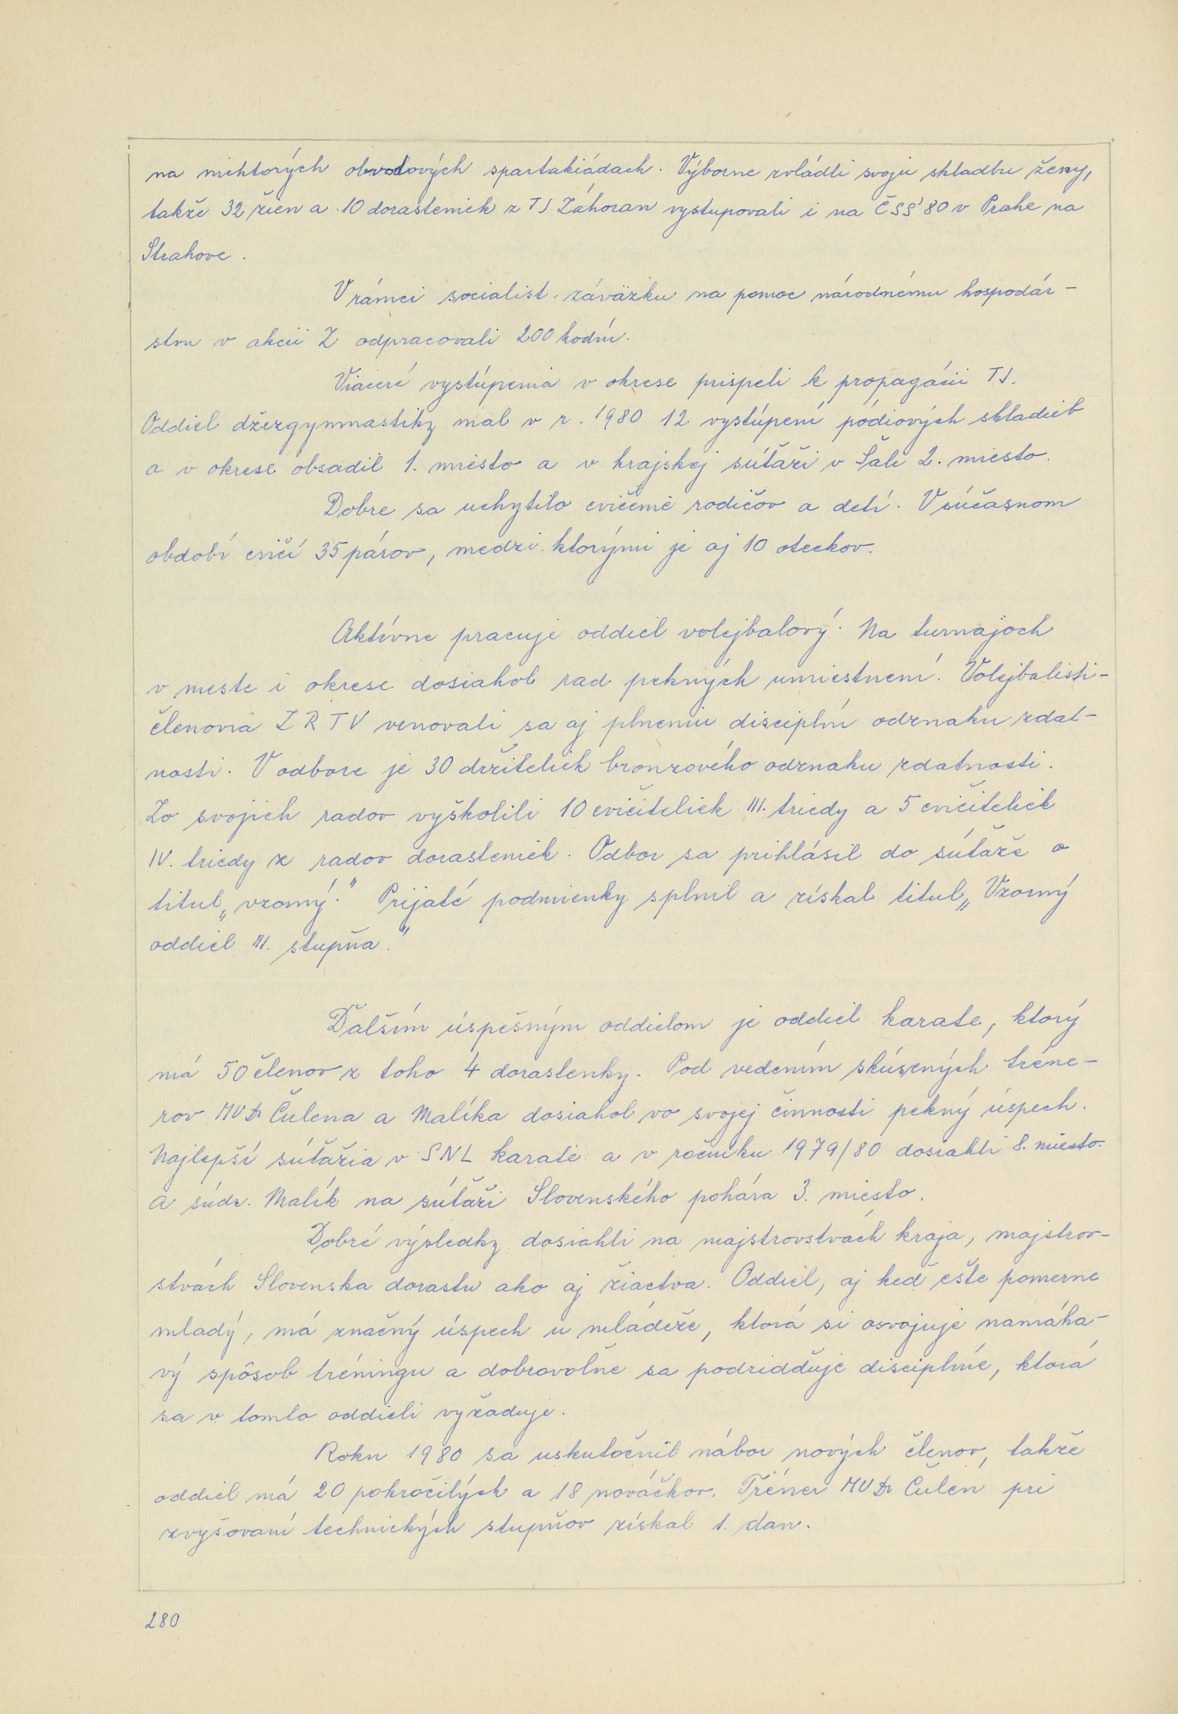 na niektorých obvodových spartakiádach. Výborne zvládli svoju skladbu ženy,
takže 32 žien a 10 dorasteniek z TJ Záhoran vystupovali i na ČSS'80 v Prahe na
Strahove.
V rámci socialist. záväzku na pomoc národnému hospodár-
stvu v akcii Z odpracovali 200 hodín.
Viaceré vystúpenia v okrese prispeli k propagácii TJ.
Oddiel džezgymnastiky mal v r. 1980 12 vystúpení pódiových skladieb
a v okrese obsadil 1. miesto a v krajskej súťaži v Šali 2. miesto.
Dobre sa uchytilo cvičenie rodičov a detí. V súčasnom
období cvičí 35 párov, medzi ktorými je aj 10 oteckov.
Aktívne pracuje oddiel volejbalový. Na turnajoch
v meste i okrese dosiahol rad pekných umiestnení. Volejbalisti-
členovia ZRTV venovali sa aj plneniu disciplín odznaku zdat-
nosti. V odbore je 30 držiteliek bronzového odznaku zdatnosti.
Zo svojich radov vyškolili 10 cvičiteliek III. triedy a 5 cvičiteliek
IV. triedy z radov dorasteniek. Odbor sa prihlásil do súťaže o
titul „vzorný." Prijaté podmienky splnil a získal titul „Vzorný
oddiel III. stupňa."
Ďalším úspešným oddielom je oddiel karate, ktorý
má 50 členov z toho 4 dorastenky. Pod vedením skúsených tréne-
rov MUDr Čulena a Malíka dosiahol vo svojej činnosti pekný úspech.
Najlepší súťažia v SNL karate a v ročníku 1979/80 dosiahli 8. miesto.
A súdr. Malík na súťaži Slovenského pohára 3. miesto.
Dobré výsledky dosiahli na majstrovstvách kraja, majstrov-
stvách Slovenska dorastu ako aj žiactva. Oddiel, aj keď ešte pomerne
mladý, má značný úspech u mládeže, ktorá si osvojuje namáha-
vý spôsob tréningu a dobrovoľne sa podriďduje disciplíne, ktorá
sa v tomto oddieli vyžaduje.
Roku 1980 sa uskutočnil nábor nových členov, takže
oddiel má 20 pokročilých a 18 nováčkov. Tréner MUDr Čulen pri
zvyšovaní technických stupňov získal 1. dan.
280